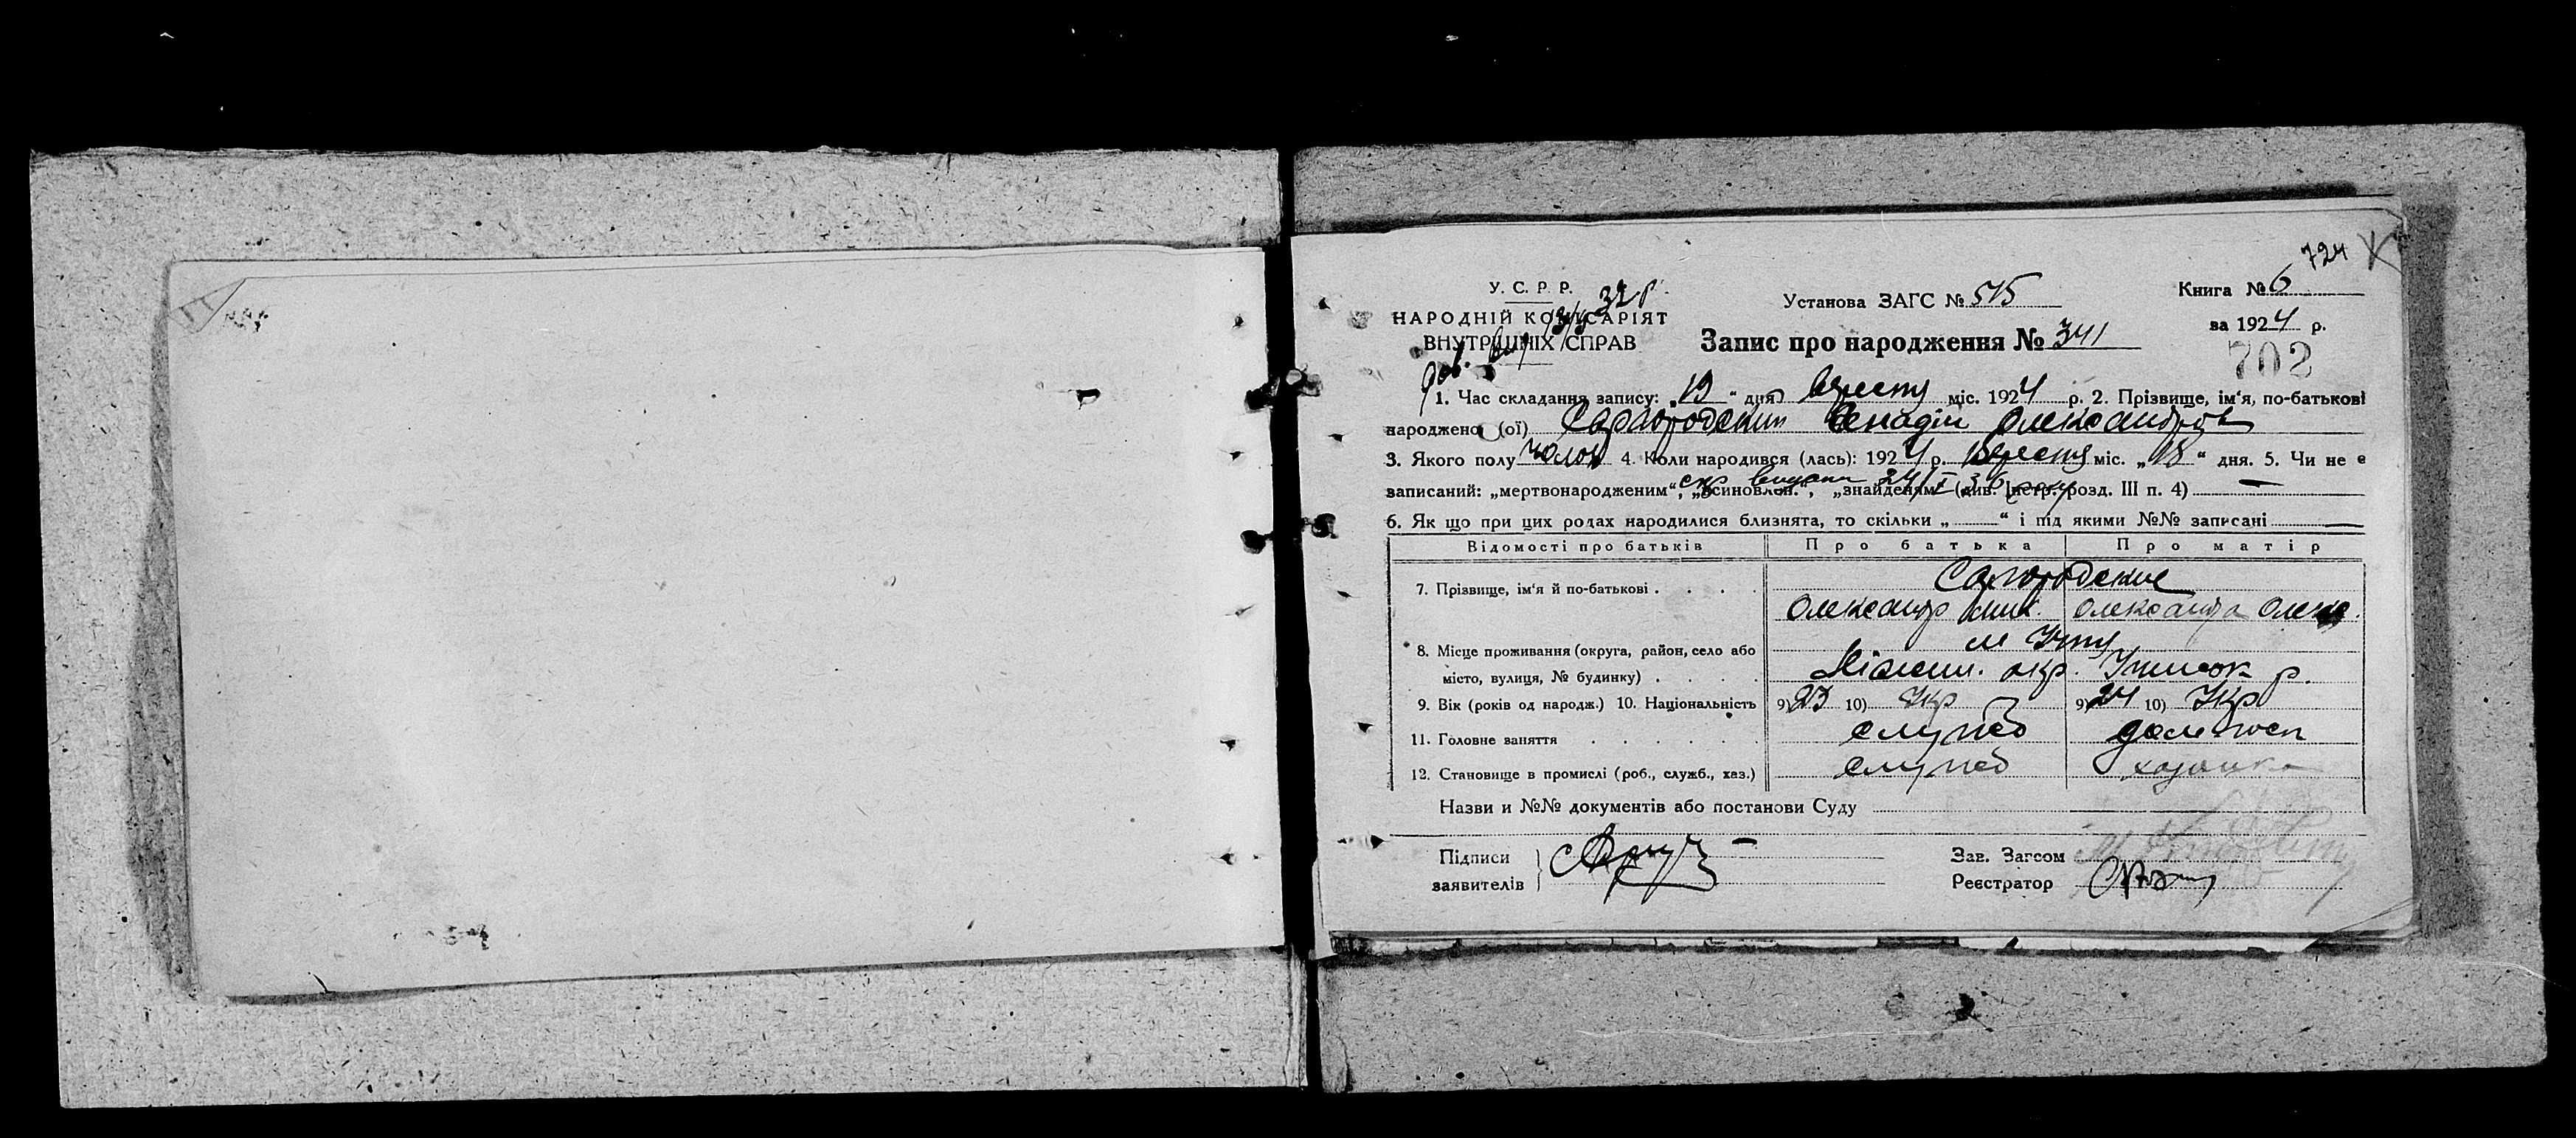 724
У. С. Р. Р.
НАРОДНІЙ КОМІСАРІЯТ
ВНУТРІШНІХ СПРАВ
Установа ЗАГС № 515
Запис про народження № 341
Книга № 6
за 1924 р.
702
1. Час складання запису: „19“ дня вересня міс. 1924 р. 2. Прізвище, ім‘я, по-батькові
народжено (ої) Генадій Олександров
3. Якого полу чолов 4. Коли народився (лась): 1924 р. вересня міс. „18“ дня. 5. Чи не є
записаний: „мертвонародженим“, „всиновлен.“, „знайденям“ (див. Інстр. розд. III п. 4) —
6. Як що при цих родах народилися близнята, то скільки „ “ і під якими №№ записані —
Відомості про батьків Про батька Про матір
7. Прізвище, ім‘я й по-батькові
Олександр Мик. Олександра Олекс.
8. Місце проживання (округа, район, село або м Ічня
місто, вулиця, № будинку) Ніжин. окр. Ічнянск р.
9. Вік (років од народж.) 10. Національність 9) 23 10) Укр 9) 24 10) Укр
11. Головне заняття служб дом. госп
12. Становище в промислі (роб., служб., хаз.) служб хазяйка
Назви и №№ документів або постанови Суду
Підписи
заявителів
Зав. Загсом
Реєстратор